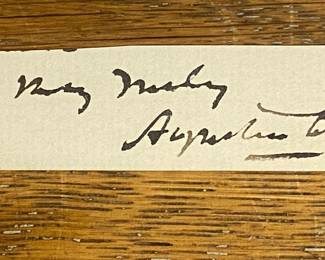 Very truly
Augustus